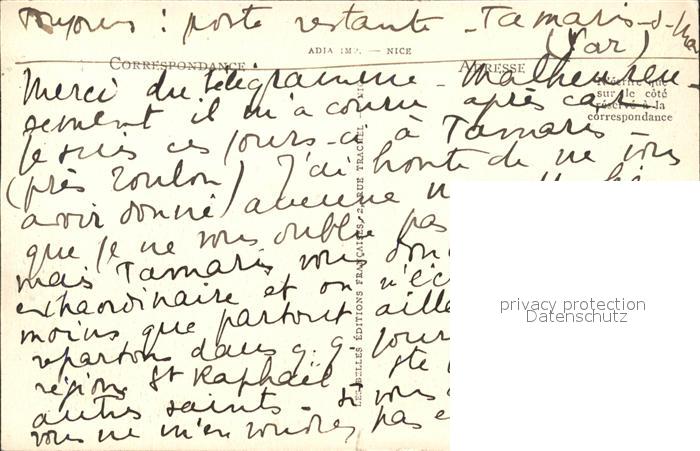 Toujours : poste restante - Tamaris-s-Mer
(Var)
ADIA IMP. — NICE
CORRESPONDANCE
ADRESSE
sur le côté
réservé à la
correspondance
Merci du télégramme - Malheureu-
sement il m'a couru après car
je suis ces jours-ci à Tamaris -
(près Toulon) J'ai honte de ne vous
avoir donné aucune
que je ne vous oublie pas
mais Tamaris vous
extraordinaire et on n'éc
moins que partout aille
repartons dans q.q. jour
région St Raphaël Ste
autres saints - si vous
vous ne m'en voudrez pas e
LES BELLES ÉDITIONS FRANÇAISES, 2, RUE TRACHEL - NICE
privacy protection
Datenschutz